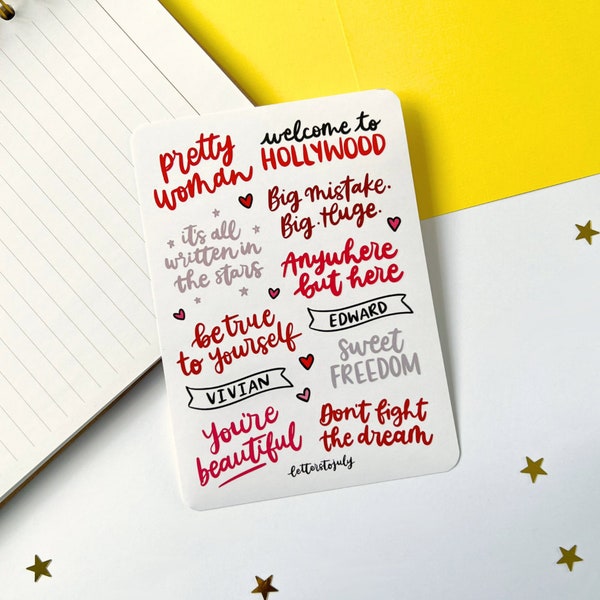 pretty
woman
welcome to
HOLLYWOOD
Big mistake.
Big. Huge.
it's all
written in
the stars
Anywhere
but here
be true
to yourself
EDWARD
sweet
FREEDOM
VIVIAN
You're
beautiful
Don't fight
the dream
letterstojuly